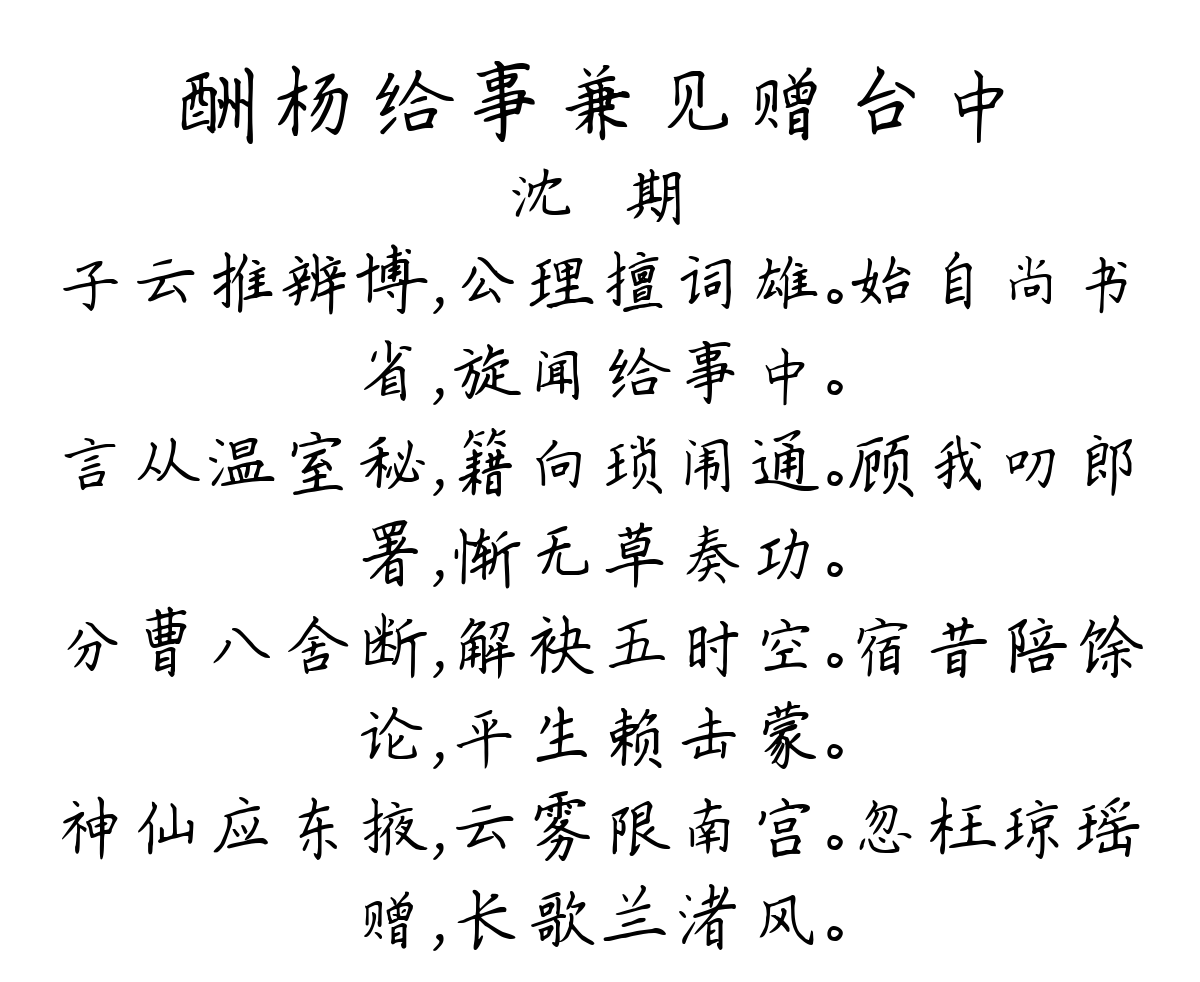 酬杨给事兼见赠台中
沈 期
子云推辨博,公理擅词雄。始自尚书
省,旋闻给事中。
言从温室秘,籍向琐闱通。顾我叨郎
署,惭无草奏功。
分曹八舍断,解袂五时空。宿昔陪馀
论,平生赖击蒙。
神仙应东掖,云雾限南宫。忽枉琼瑶
赠,长歌兰渚风。